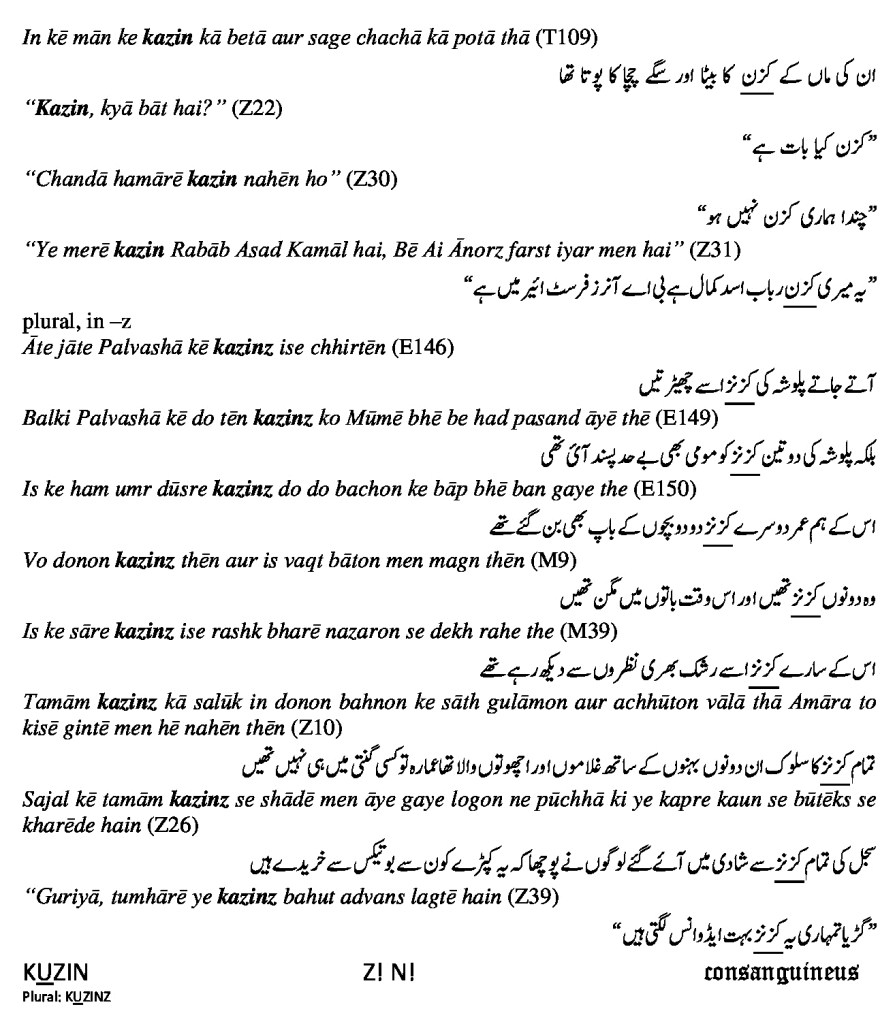 In kē mān ke kazin kā betā aur sage chachā kā potā thā (T109)
ان کی ماں کے کزن کا بیٹا اور سگے چچا کا پوتا تھا
“Kazin, kyā bāt hai?” (Z22)
”کزن کیا بات ہے“
“Chandā hamārē kazin nahēn ho” (Z30)
”چندا ہماری کزن نہیں ہو“
“Ye merē kazin Rabāb Asad Kamāl hai, Bē Ai Ānorz farst iyar men hai” (Z31)
”یہ میری کزن رباب اسد کمال ہے بی اے آنرز فرسٹ ائیر میں ہے“
plural, in –z
Āte jāte Palvashā kē kazinz ise chhirtēn (E146)
آتے جاتے پلوشہ کی کزنز اسے چھیڑتیں
Balki Palvashā kē do tēn kazinz ko Mūmē bhē be had pasand āyē thē (E149)
بلکہ پلوشہ کی دو تین کزنز کو مومی بھی بے حد پسند آئ تھی
Is ke ham umr dūsre kazinz do do bachon ke bāp bhē ban gaye the (E150)
اس کے ہم عمر دوسرے کزنز دو دو بچوں کے باپ بھی بن گئے تھے
Vo donon kazinz thēn aur is vaqt bāton men magn thēn (M9)
وہ دونوں کزنز تھیں اور اس وقت باتوں میں مگن تھیں
Is ke sāre kazinz ise rashk bharē nazaron se dekh rahe the (M39)
اس کے سارے کزنز اسے رشک بھری نظروں سے دیکھ رہے تھے
Tamām kazinz kā salūk in donon bahnon ke sāth gulāmon aur achhūton vālā thā Amāra to
kisē gintē men hē nahēn thēn (Z10)
تمام کزنز کا سلوک ان دونوں بہنوں کے ساتھ غلاموں اور اچھوتوں والا تھا عمارہ تو کسی گنتی میں ہی نہیں تھیں
Sajal kē tamām kazinz se shādē men āye gaye logon ne pūchhā ki ye kapre kaun se būtēks se
kharēde hain (Z26)
سجل کی تمام کزنز سے شادی میں آئے گئے لوگوں نے پوچھا کہ یہ کپڑے کون سے بوتیکس سے خریدے ہیں
“Guriyā, tumhārē ye kazinz bahut advans lagtē hain (Z39)
”گڑیا تمہاری یہ کزنز بہت ایڈوانس لگتی ہیں“
KUZIN Z! N! consanguineus
Plural: KUZINZ